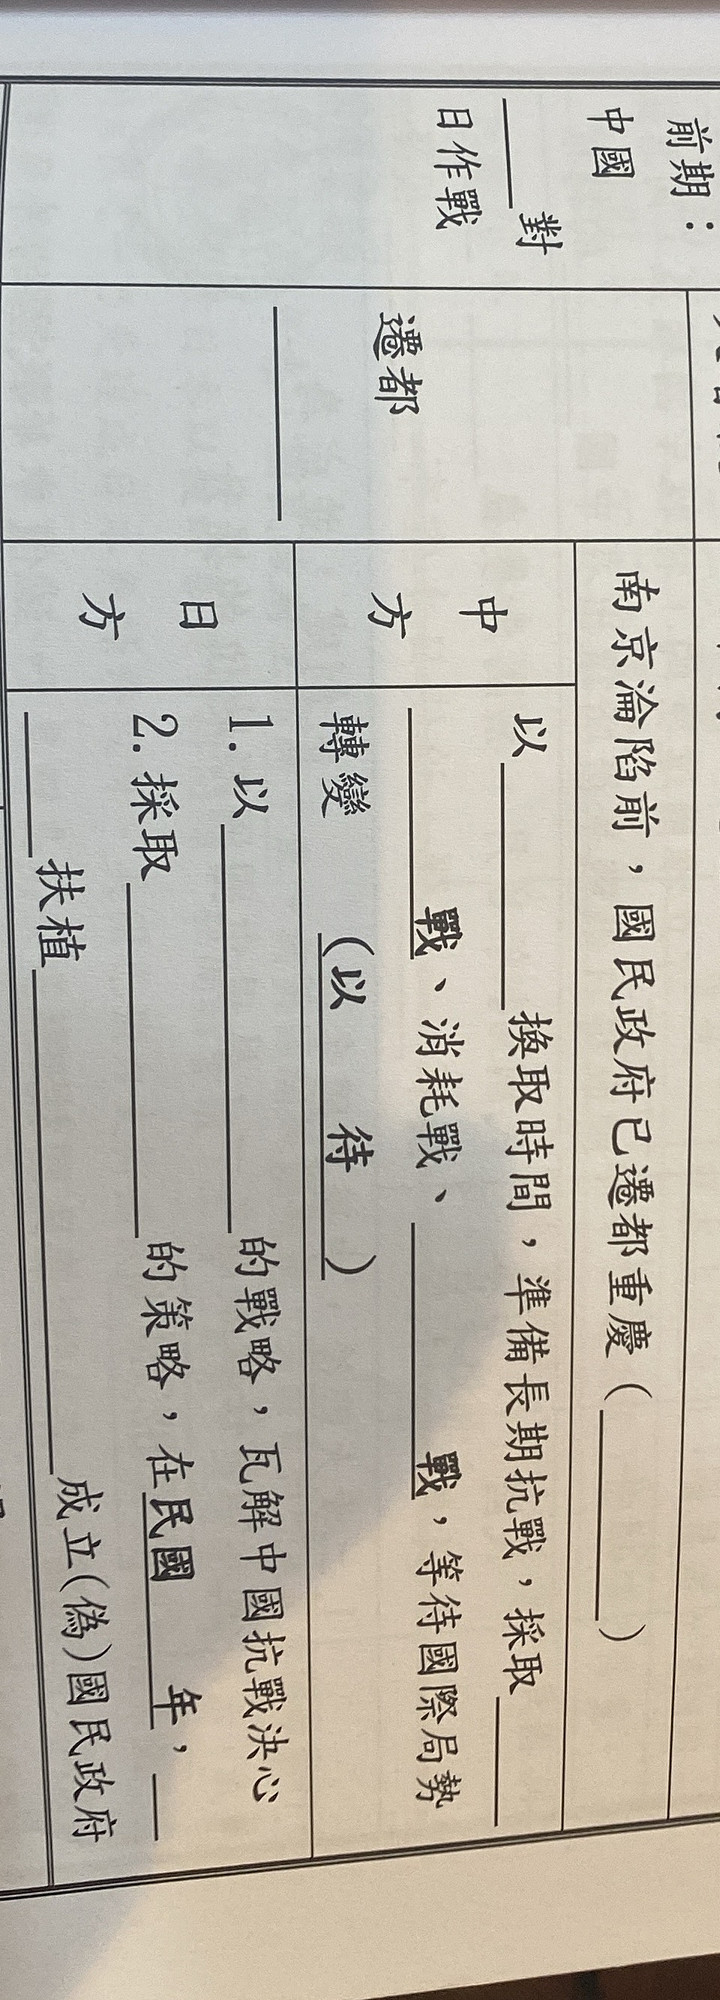 前期：
中國
____對
日作戰
遷都
____
南京淪陷前，國民政府已遷都重慶(____)
中方
以____換取時間，準備長期抗戰，採取____
____戰、消耗戰、____戰，等待國際局勢
轉變 (以 待 )
日方
1.以____的戰略，瓦解中國抗戰決心
2.採取____的策略，在民國 年，____
____扶植____成立(偽)國民政府